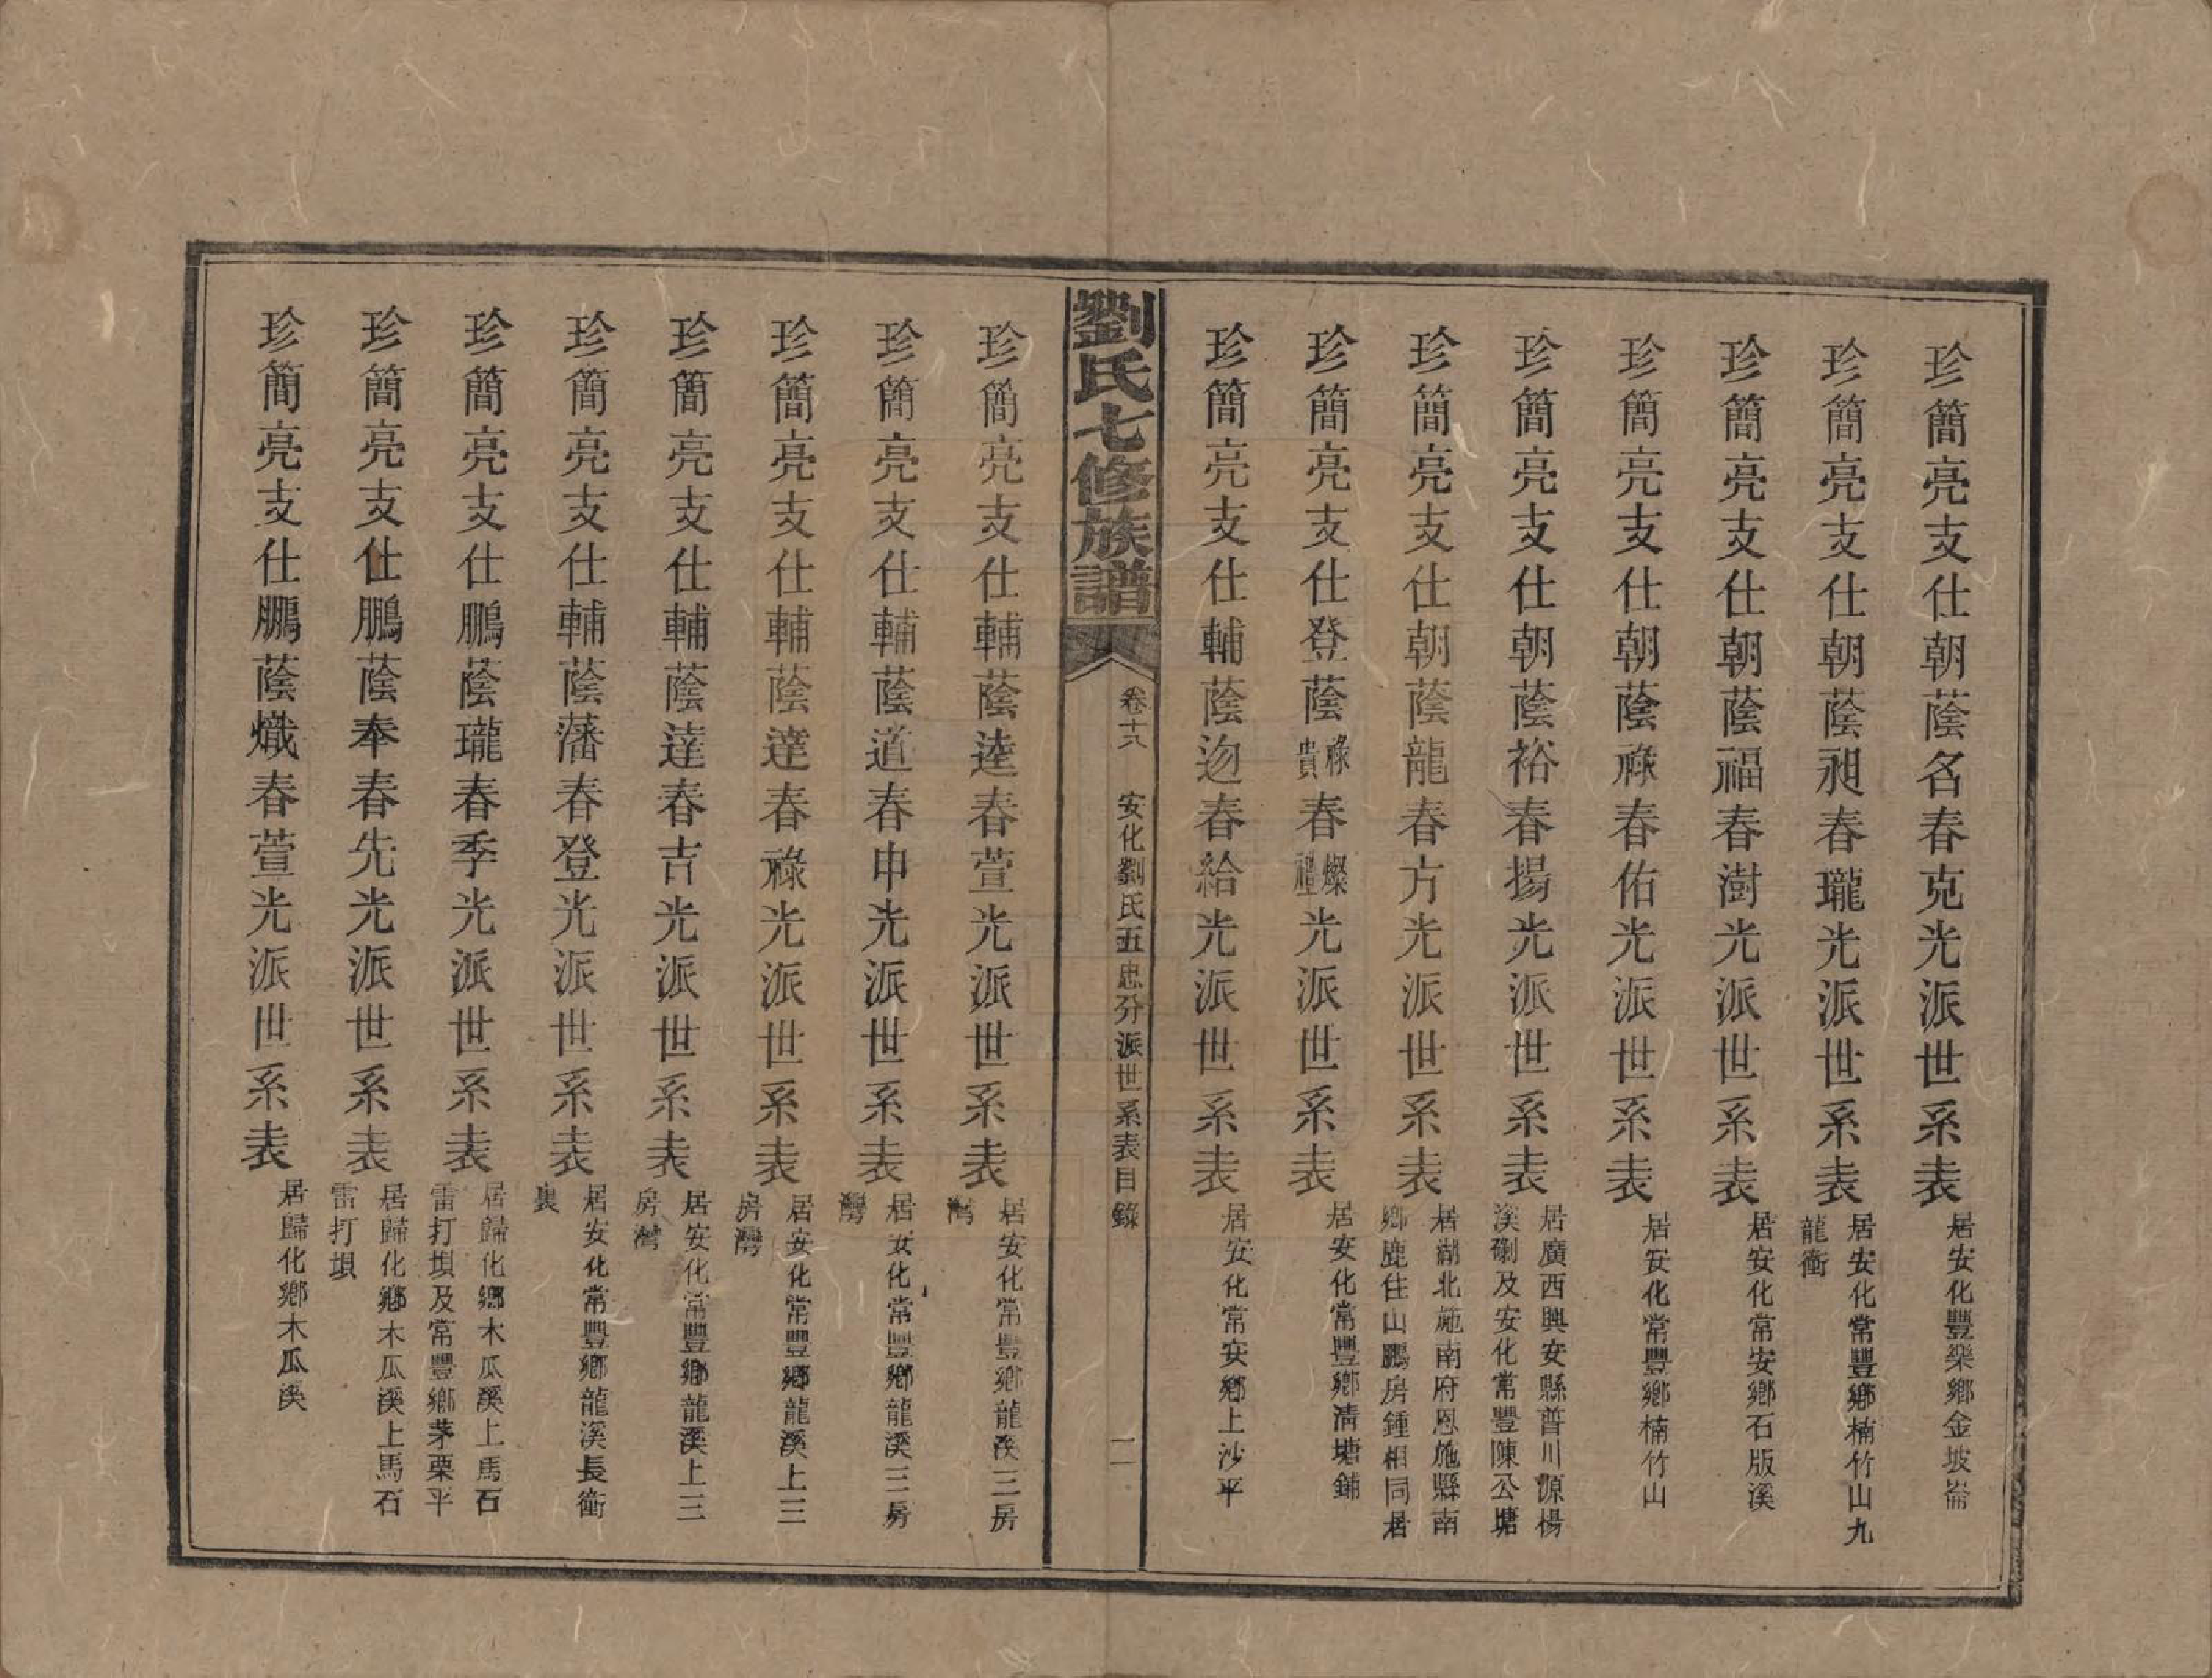 珍簡亮支仕朝蔭名春克光派世系表居安化豐樂鄉金坡崙
珍簡亮支仕朝蔭昶春瓏光派世系表居安化常豐鄉楠竹山九
龍衝
珍簡亮支仕朝蔭福春澍光派世系表居安化常安鄉石版溪
珍簡亮支仕朝蔭祿春佑光派世系表居安化常豐鄉楠竹山
珍簡亮支仕朝蔭裕春揚光派世系表居廣西興安縣普川源楊
溪㓊及安化常豐陳公塘
珍簡亮支仕朝蔭龍春方光派世系表居湖北施南府恩施縣南
鄉鹿住山鵬房鍾相同居
珍簡亮支仕登蔭祿貴春燦禮光派世系表居安化常豐鄉清塘鋪
珍簡亮支仕輔蔭迩春給光派世系表居安化常安鄉上沙平
劉氏七修族譜 卷十六 安化劉氏五忠分派世系表目錄 二
珍簡亮支仕輔蔭逵春萱光派世系表居安化常豐鄉龍溪三房
灣
珍簡亮支仕輔蔭道春申光派世系表居安化常豐鄉龍溪三房
灣
珍簡亮支仕輔蔭達春祿光派世系表居安化常豐鄉龍溪上三
房灣
珍簡亮支仕輔蔭達春吉光派世系表居安化常豐鄉龍溪上三
房灣
珍簡亮支仕輔蔭藩春登光派世系表居安化常豐鄉龍溪長衝
裏
珍簡亮支仕鵬蔭瓏春季光派世系表居歸化鄉木瓜溪上馬石
雷打垻及常豐鄉茅栗平
珍簡亮支仕鵬蔭奉春先光派世系表居歸化鄉木瓜溪上馬石
雷打垻
珍簡亮支仕鵬蔭熾春萱光派世系表居歸化鄉木瓜溪